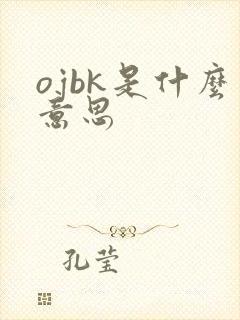 ojbk是什麼
意思
孔莹